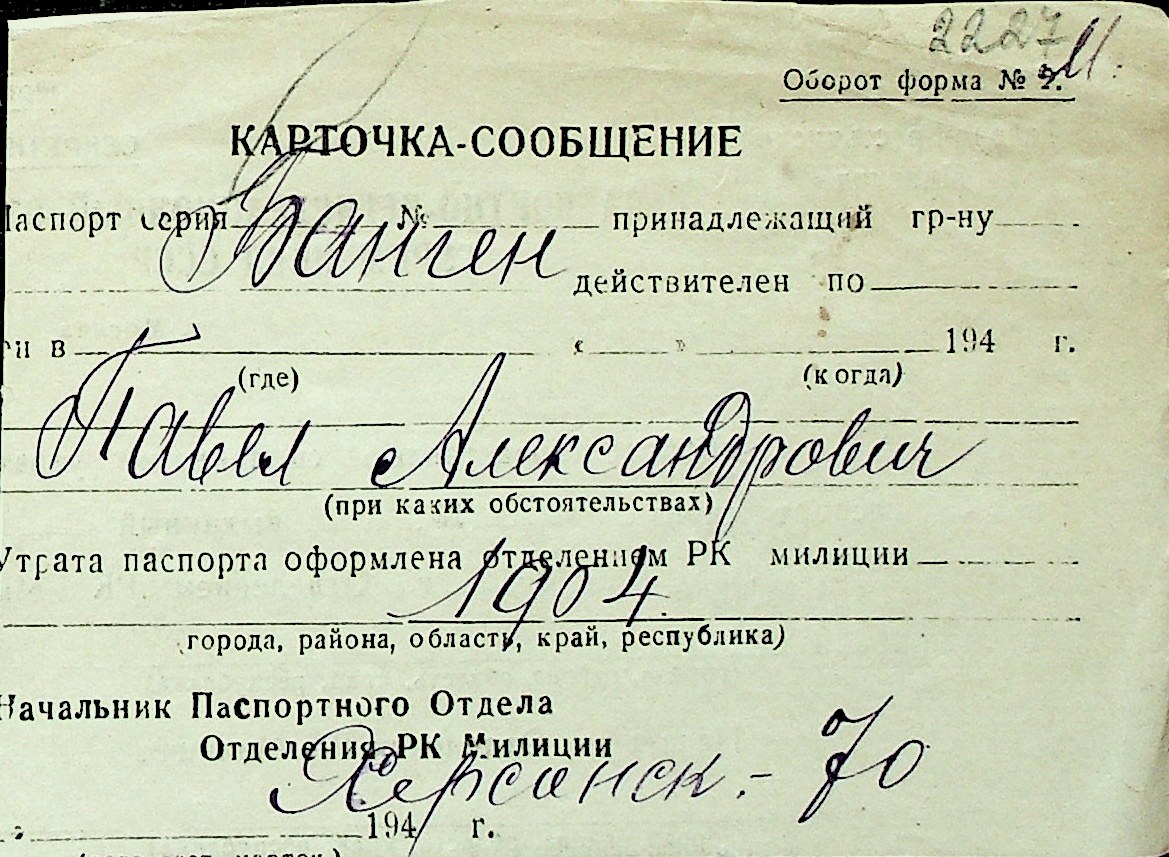 2227
Оборот форма № 9.
КАРТОЧКА-СООБЩЕНИЕ
Паспорт серия № принадлежащий гр-ну
Ванген
действителен по
в « » 194 г.
(где) (когда)
Павел Александрович
(при каких обстоятельствах)
Утрата паспорта оформлена отделением РК милиции
1904
города, района, область, край, республика)
Начальник Паспортного Отдела
Отделения РК Милиции
Херсонск. - 70
194 г.